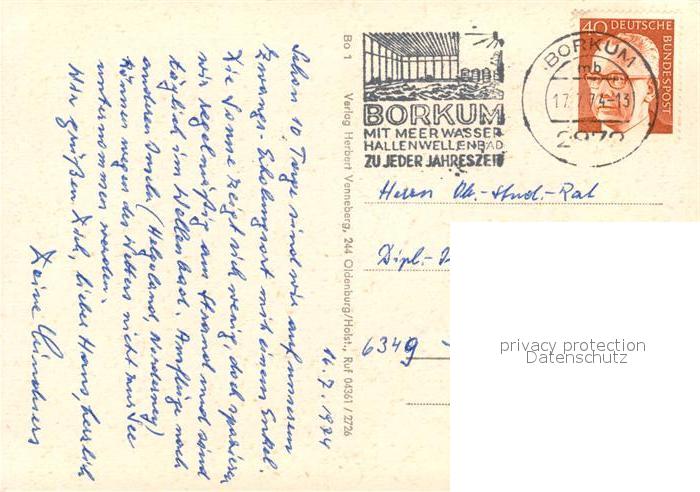 16.7.1974
Schon 10 Tage sind wir auf unserem
Zwangs-Erholungsort mit einem Enkel.
Die Sonne zeigt sich wenig, doch spazieren
wir regelmäßig am Strand und sind
täglich im Wellenbad. Ausflüge nach
anderen Inseln (Helgoland, Norderney)
können wegen des Wetters nicht zur See
unternommen werden.
Wir grüßen Dich, lieber Hans, herzlich
Deine
Bo 1
Verlag Herbert Venneberg, 244 Oldenburg/Holst., Ruf 04361 / 2726
BORKUM
MIT MEERWASSER
HALLENWELLENBAD
ZU JEDER JAHRESZEIT
BORKUM
mb
17.7.74-13
2972
40 DEUTSCHE
BUNDESPOST
Herrn Ob.-Stud.-Rat
Dipl.-
6349
privacy protection
Datenschutz